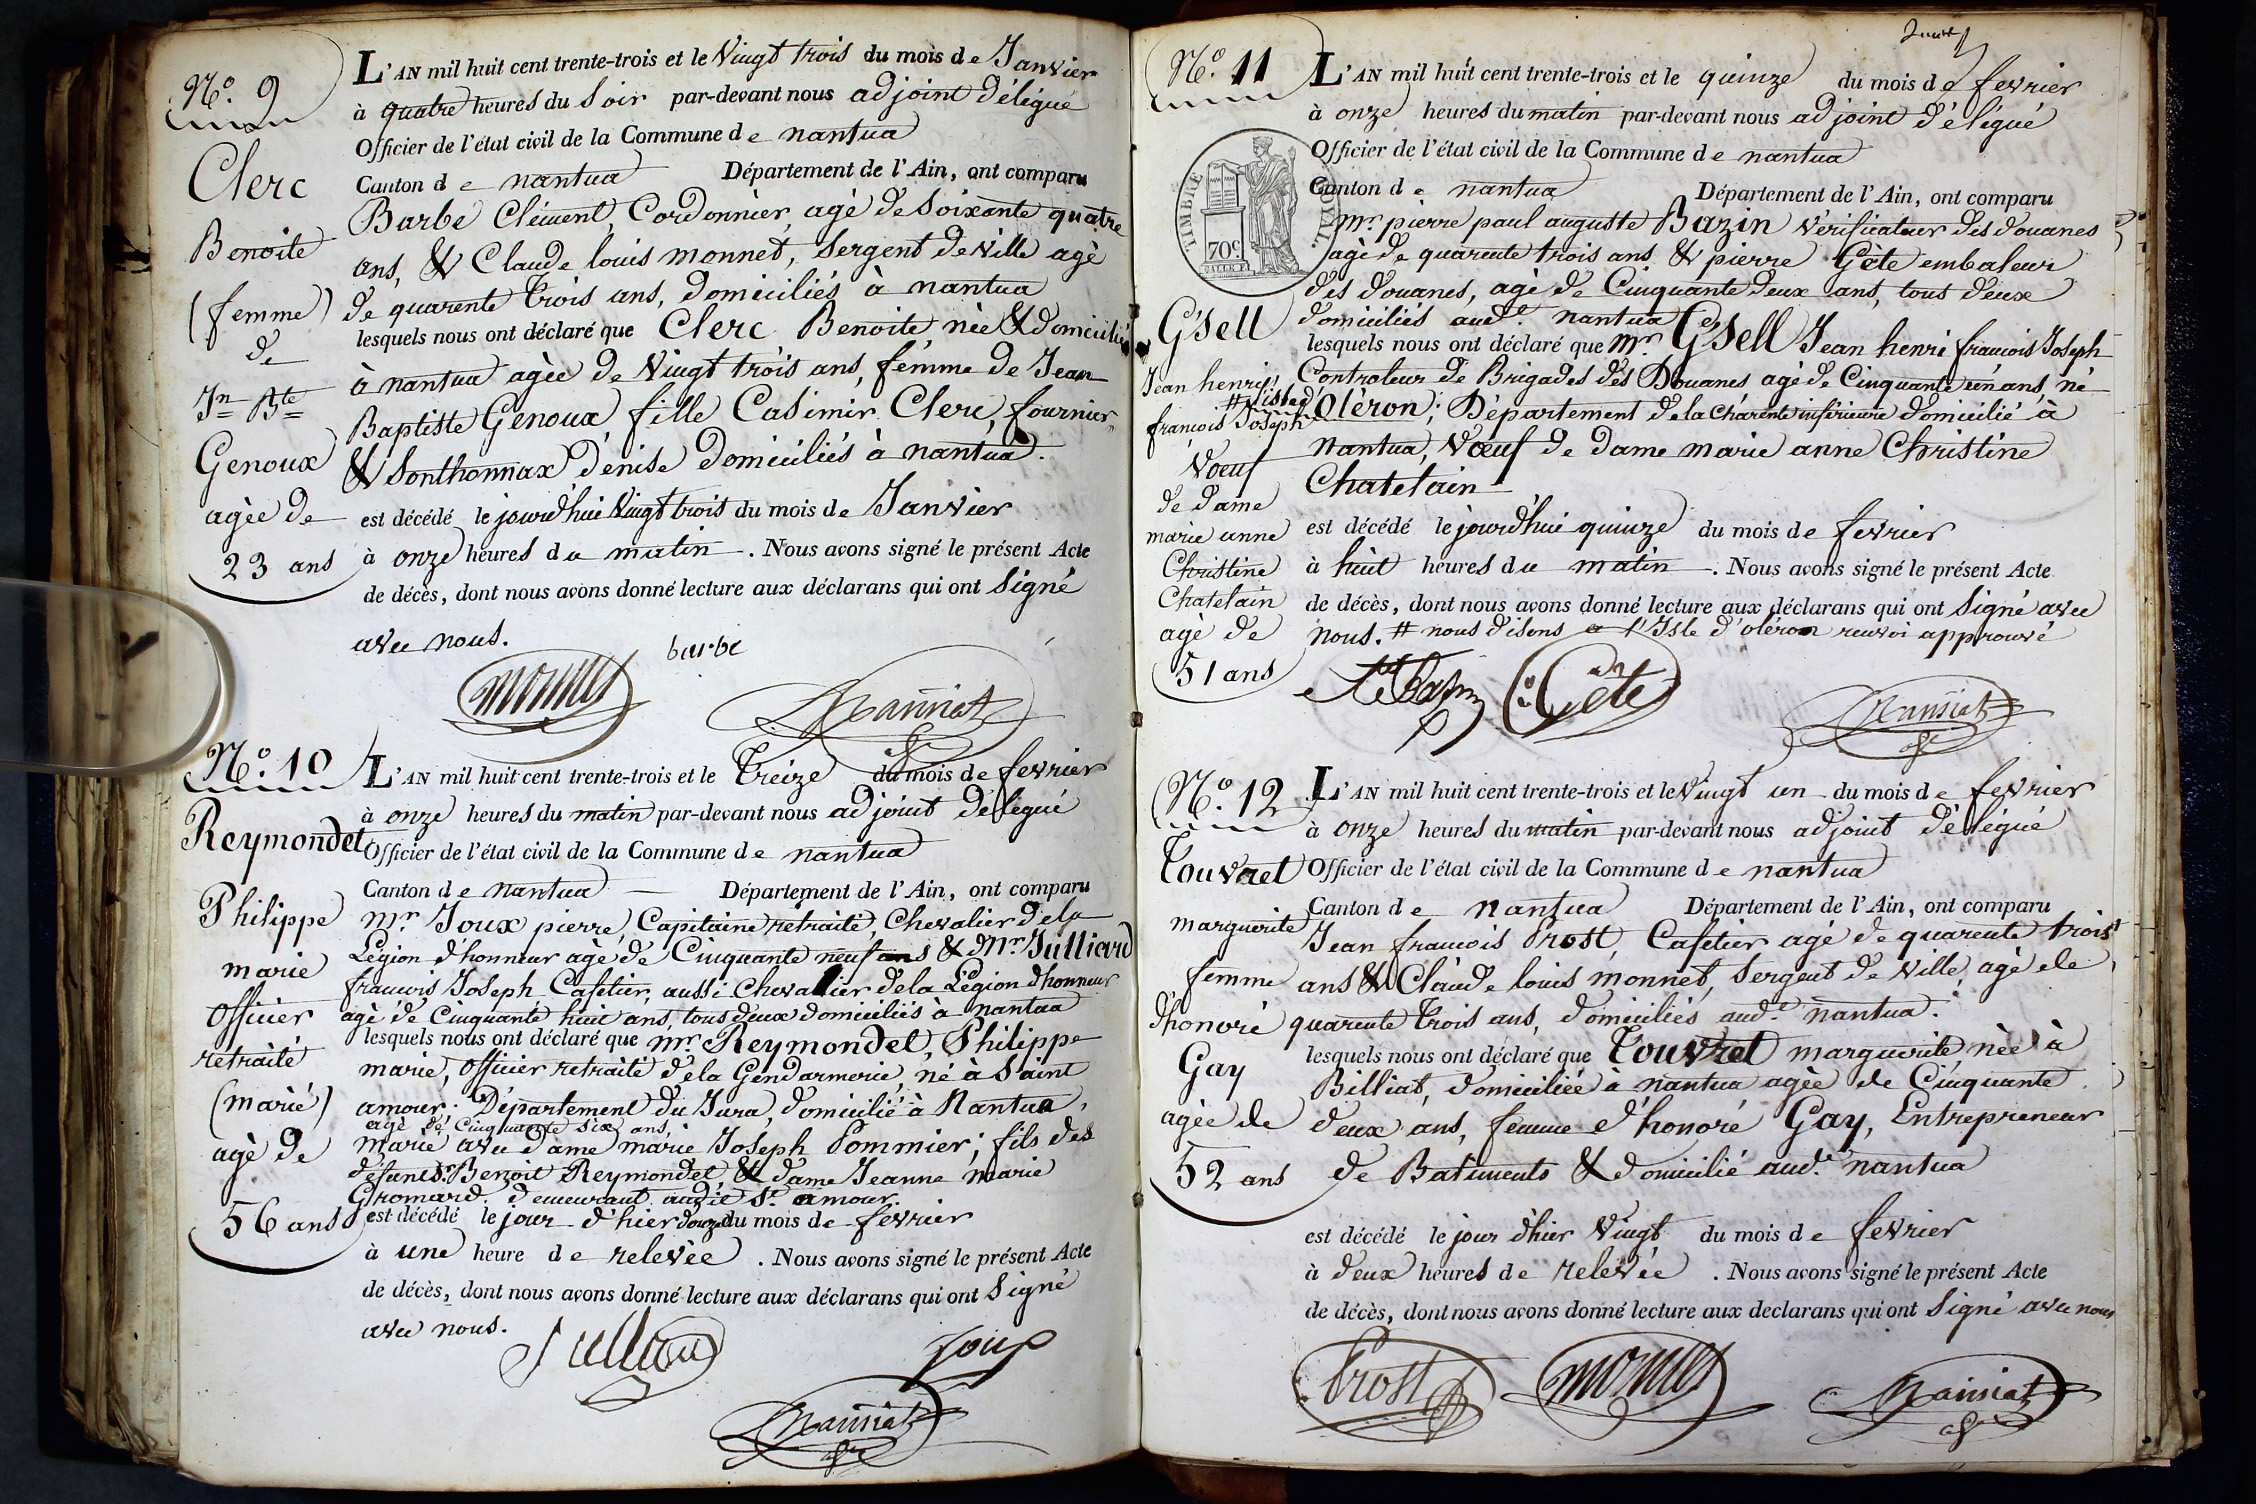 N.º 9
Clerc
Benoite
(femme)
de
Jn Bte
Genoux
agée de
23 ans
L'AN mil huit cent trente-trois et le Vingt trois du mois de Janvier
à quatre heures du Soir par-devant nous adjoint délégué
Officier de l'état civil de la Commune de nantua
Canton de nantua Département de l'Ain, ont comparu
Barbe Clément, Cordonnier, agé de Soixante quatre
ans, & Claude louis monnet, Sergent de Ville agé
de quarente trois ans, domiciliés à nantua
lesquels nous ont déclaré que Clerc Benoite née & domicilié
à nantua agée de Vingt trois ans, fémme de Jean
Baptiste Genoux fille Casimir Clerc, fournier,
& Sonthonnax dénise domiciliés à nantua.
est décédé le jourd'hui Vingt trois du mois de Janvier
à onze heures du matin. Nous avons signé le présent Acte
de décès, dont nous avons donné lecture aux déclarans qui ont Signé
avec nous.
barbe
monnet
N.º 10
Reymondet
Philippe
marie
Officier
retraité
(marié)
agé de
56 ans
L'AN mil huit cent trente-trois et le treize du mois de fevrier
à onze heures du matin par-devant nous adjoint délégué
Officier de l'état civil de la Commune de nantua
Canton de nantua Département de l'Ain, ont comparu
mr. Joux pierre, Capitaine retraité, Chevalier de la
Légion d'honneur agé de Cinquante neuf ans & Mr. Julliard
francois Joseph Cafetier, aussi Chevalier de la Légion d'honneur
agé de Cinquante huit ans, tous deux domiciliés à nantua
lesquels nous ont déclaré que mr. Reymondet, Philippe
marie, Officier retraité de la Gendarmerie, né à Saint
amour; Département du Jura, domicilié à Nantua,
agé de Cinquante Six ans,
marié avec dame marie Joseph Pommier; fils des
défunts Sr. Benoit Reymondet, & dame Jeanne marie
Gromard. demeurant audit St. amour.
est décédé le jour d'hier douze du mois de fevrier
à une heure de relevée. Nous avons signé le présent Acte
de décès, dont nous avons donné lecture aux déclarans qui ont Signé
avec nous.
Julliard
Joux
N.º 11
G'sell
Jean henry
francois Joseph
Vœuf
de dame
marie anne
Christine
Chatelain
agé de
51 ans
TIMBRE ROYAL.
70 c.
L'AN mil huit cent trente-trois et le quinze du mois de fevrier
à onze heures du matin par-devant nous adjoint délégué
Officier de l'état civil de la Commune de nantua
Canton de nantua Département de l'Ain, ont comparu
mr. pierre paul auguste Bazin Vérificateur des douanes
agé de quarente trois ans & pierre Gête embaleur
des douanes, agé de Cinquante deux ans, tous deux
domiciliés aud.e nantua
lesquels nous ont déclaré que mr. G'sell Jean henri francois Joseph
Controleur de Brigades des Douanes agé de Cinquante un ans, né
Oléron; Département de la Charente inférieure domicilié à
nantua, Vœuf de dame marie anne Christine
Chatelain
est décédé le jourd'hui quinze du mois de fevrier
à huit heures du matin. Nous avons signé le présent Acte
de décès, dont nous avons donné lecture aux déclarans qui ont Signé avec
nous. # nous disons a l'Isle d'oléron renvoi approuvé
Bazin
Gête
N.º 12
Touvret
marguerite
femme
d'honoré
Gay
agée de
52 ans
L'AN mil huit cent trente-trois et le Vingt un du mois de fevrier
à onze heures du matin par-devant nous adjoint délégué
Officier de l'état civil de la Commune de nantua
Canton de nantua Département de l'Ain, ont comparu
Jean francois Prost, Cafetier agé de quarente trois
ans & Claude louis monnet, Sergent de Ville, agé de
quarente trois ans, domiciliés aud.e nantua.
lesquels nous ont déclaré que Touvret marguerite née à
Billiat, domiciliée à nantua agée de Cinquante
deux ans, femme d'honoré Gay, Entrepreneur
de Batiments & domicilié aud.e nantua
est décédé le jour d'hier Vingt du mois de fevrier
à deux heures de relevée. Nous avons signé le présent Acte
de décès, dont nous avons donné lecture aux declarans qui ont Signé avec nous
Prost
monnet